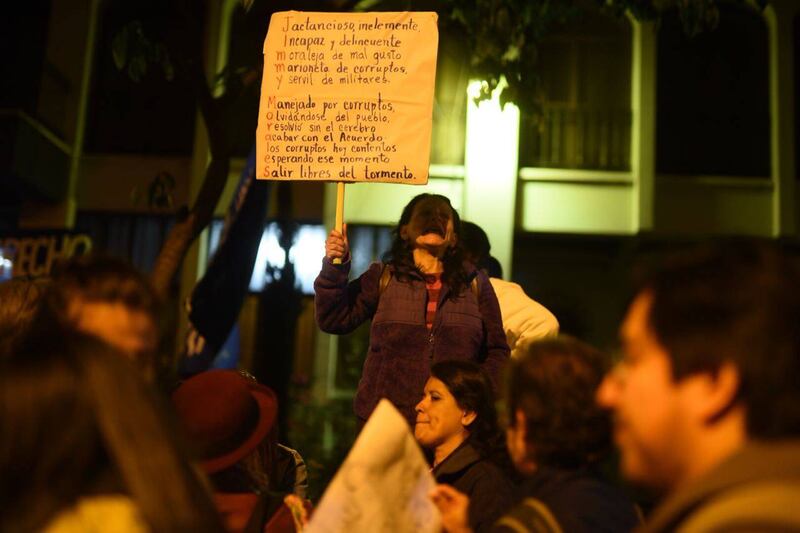 Jactancioso, inelemente,
Incapaz y delincuente
moraleja de mal gusto
marioneta de corruptos,
y servil de militares.
Manejado por corruptos,
olvidándose del pueblo,
resolvió sin el cerebro
acabar con el Acuerdo.
los corruptos hoy contentos
esperando ese momento
Salir libres del tormento.
DERECHO